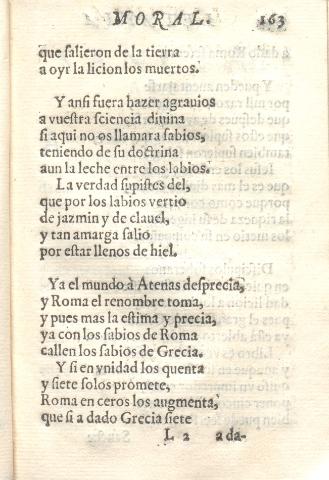 MORAL. 163
que salieron de la tierra
a oyr la licion los muertos.
Y ansi fuera hazer agrauios
a vuestra sciencia diuina
si aqui no os llamara sabios,
teniendo de su doctrina
aun la leche entre los labios.
La verdad supistes del,
que por los labios vertio
de jazmin y de clauel,
y tan amarga salio
por estar llenos de hiel.
Ya el mundo à Atenas desprecia,
y Roma el renombre toma,
y pues mas la estima y precia,
ya con los sabios de Roma
callen los sabios de Grecia.
Y si en vnidad los quenta
y siete solos promete,
Roma en ceros los augmenta,
que si a dado Grecia siete
L 2 a da-